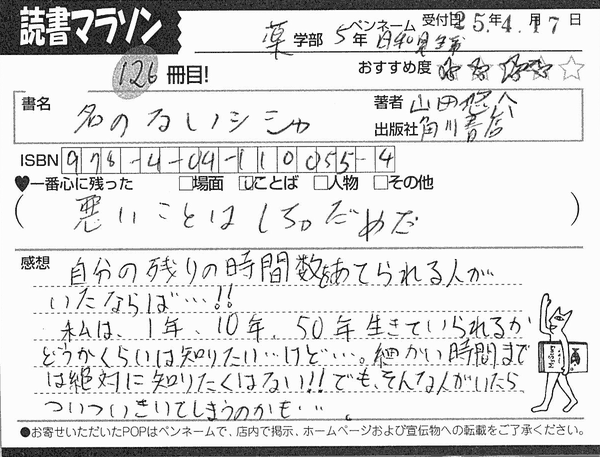 読書マラソン
受付日 25年4月17日
薬 学部 5年 ペンネーム 日和見主義
126 冊目!
おすすめ度 ☆☆☆☆☆
書名 名のないシシャ
著者 山田悠介
出版社 角川書店
ISBN 978-4-04-110055-4
♥一番心に残った □場面 □ことば □人物 □その他
(悪いことはしちゃだめだ)
感想 自分の残りの時間数をあてられる人が
いたならば…!!
私は、1年、10年、50年生きていられるか
どうかくらいは知りたい…けど…。細かい時間まで
は絶対に知りたくはない!!でも、そんな人がいたら、
ついついきいてしまうのかも…。
●お寄せいただいたPOPはペンネームで、店内で掲示、ホームページおよび宣伝物への転載をご了承ください。